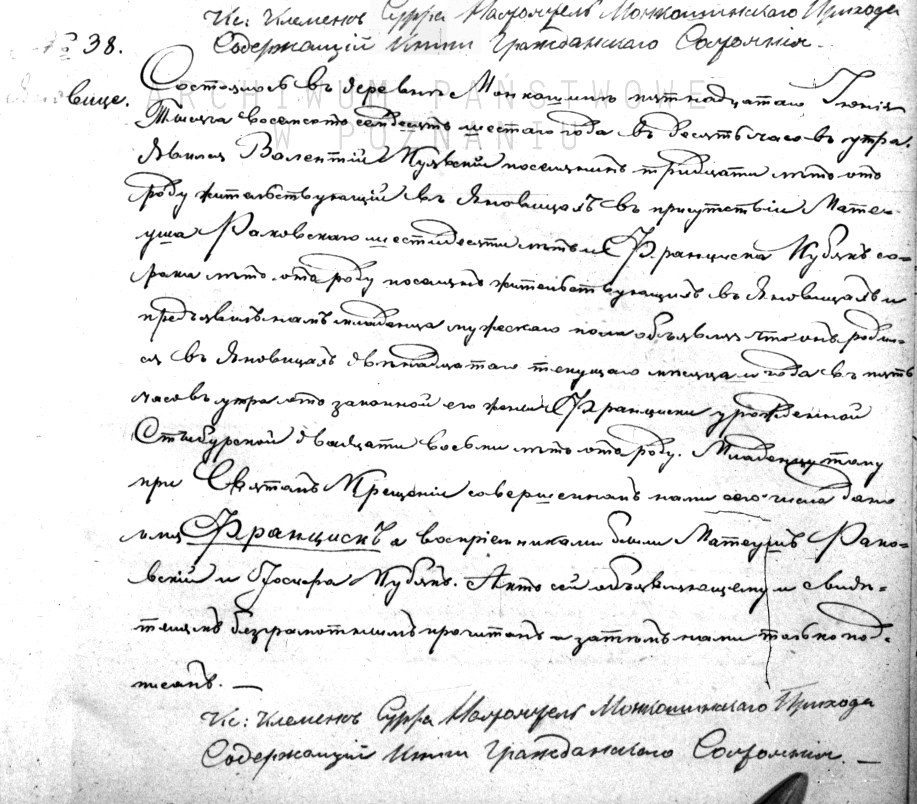 Кс: Клеменс Сурра Настоятель Монкошинскаго Прихода
Содержащій Книги Гражданскаго Состоянія.
№ 38.
вице.
ARCHIWUM PAŃSTWOWE
W POZNANIU
Состоялось въ деревне Монкошинъ пятнадцатаго Іюнія
Тысяча восемьсотъ семдесять шестаго года въ десять часовъ утра.
Явился Валентій поселянинъ тридцати лѣтъ отъ
роду жительствующій въ Яновицахъ въ присутствіи Мате-
уша Раковскаго шестидесяти лѣтъ и Франциска Кубякъ со-
рока лѣтъ отъ роду поселянъ жительствующихъ въ Яновицахъ и
предъявилъ намъ младенца мужескаго пола объявляя что онъ родил-
ся въ Яновицахъ двенадцатаго текущаго месяца и года въ пять
часовъ утра отъ законной его жены Франциски урожденной
двадцати восьми лѣтъ отъ роду. Младенцу тому
при Святомъ Крещеніи совершенномъ нами сего числа дано
имя Францискъ а воспріемниками были Матеушъ Рако-
вскій и Юсефа Кубякъ. Актъ сей объявляющему и свиде-
телямъ безграмотнымъ прочитанъ а затемъ нами только под-
писанъ. —
Кс: Клеменс Сурра Настоятель Монкошинскаго Прихода
Содержащій Книги Гражданскаго Состоянія. —